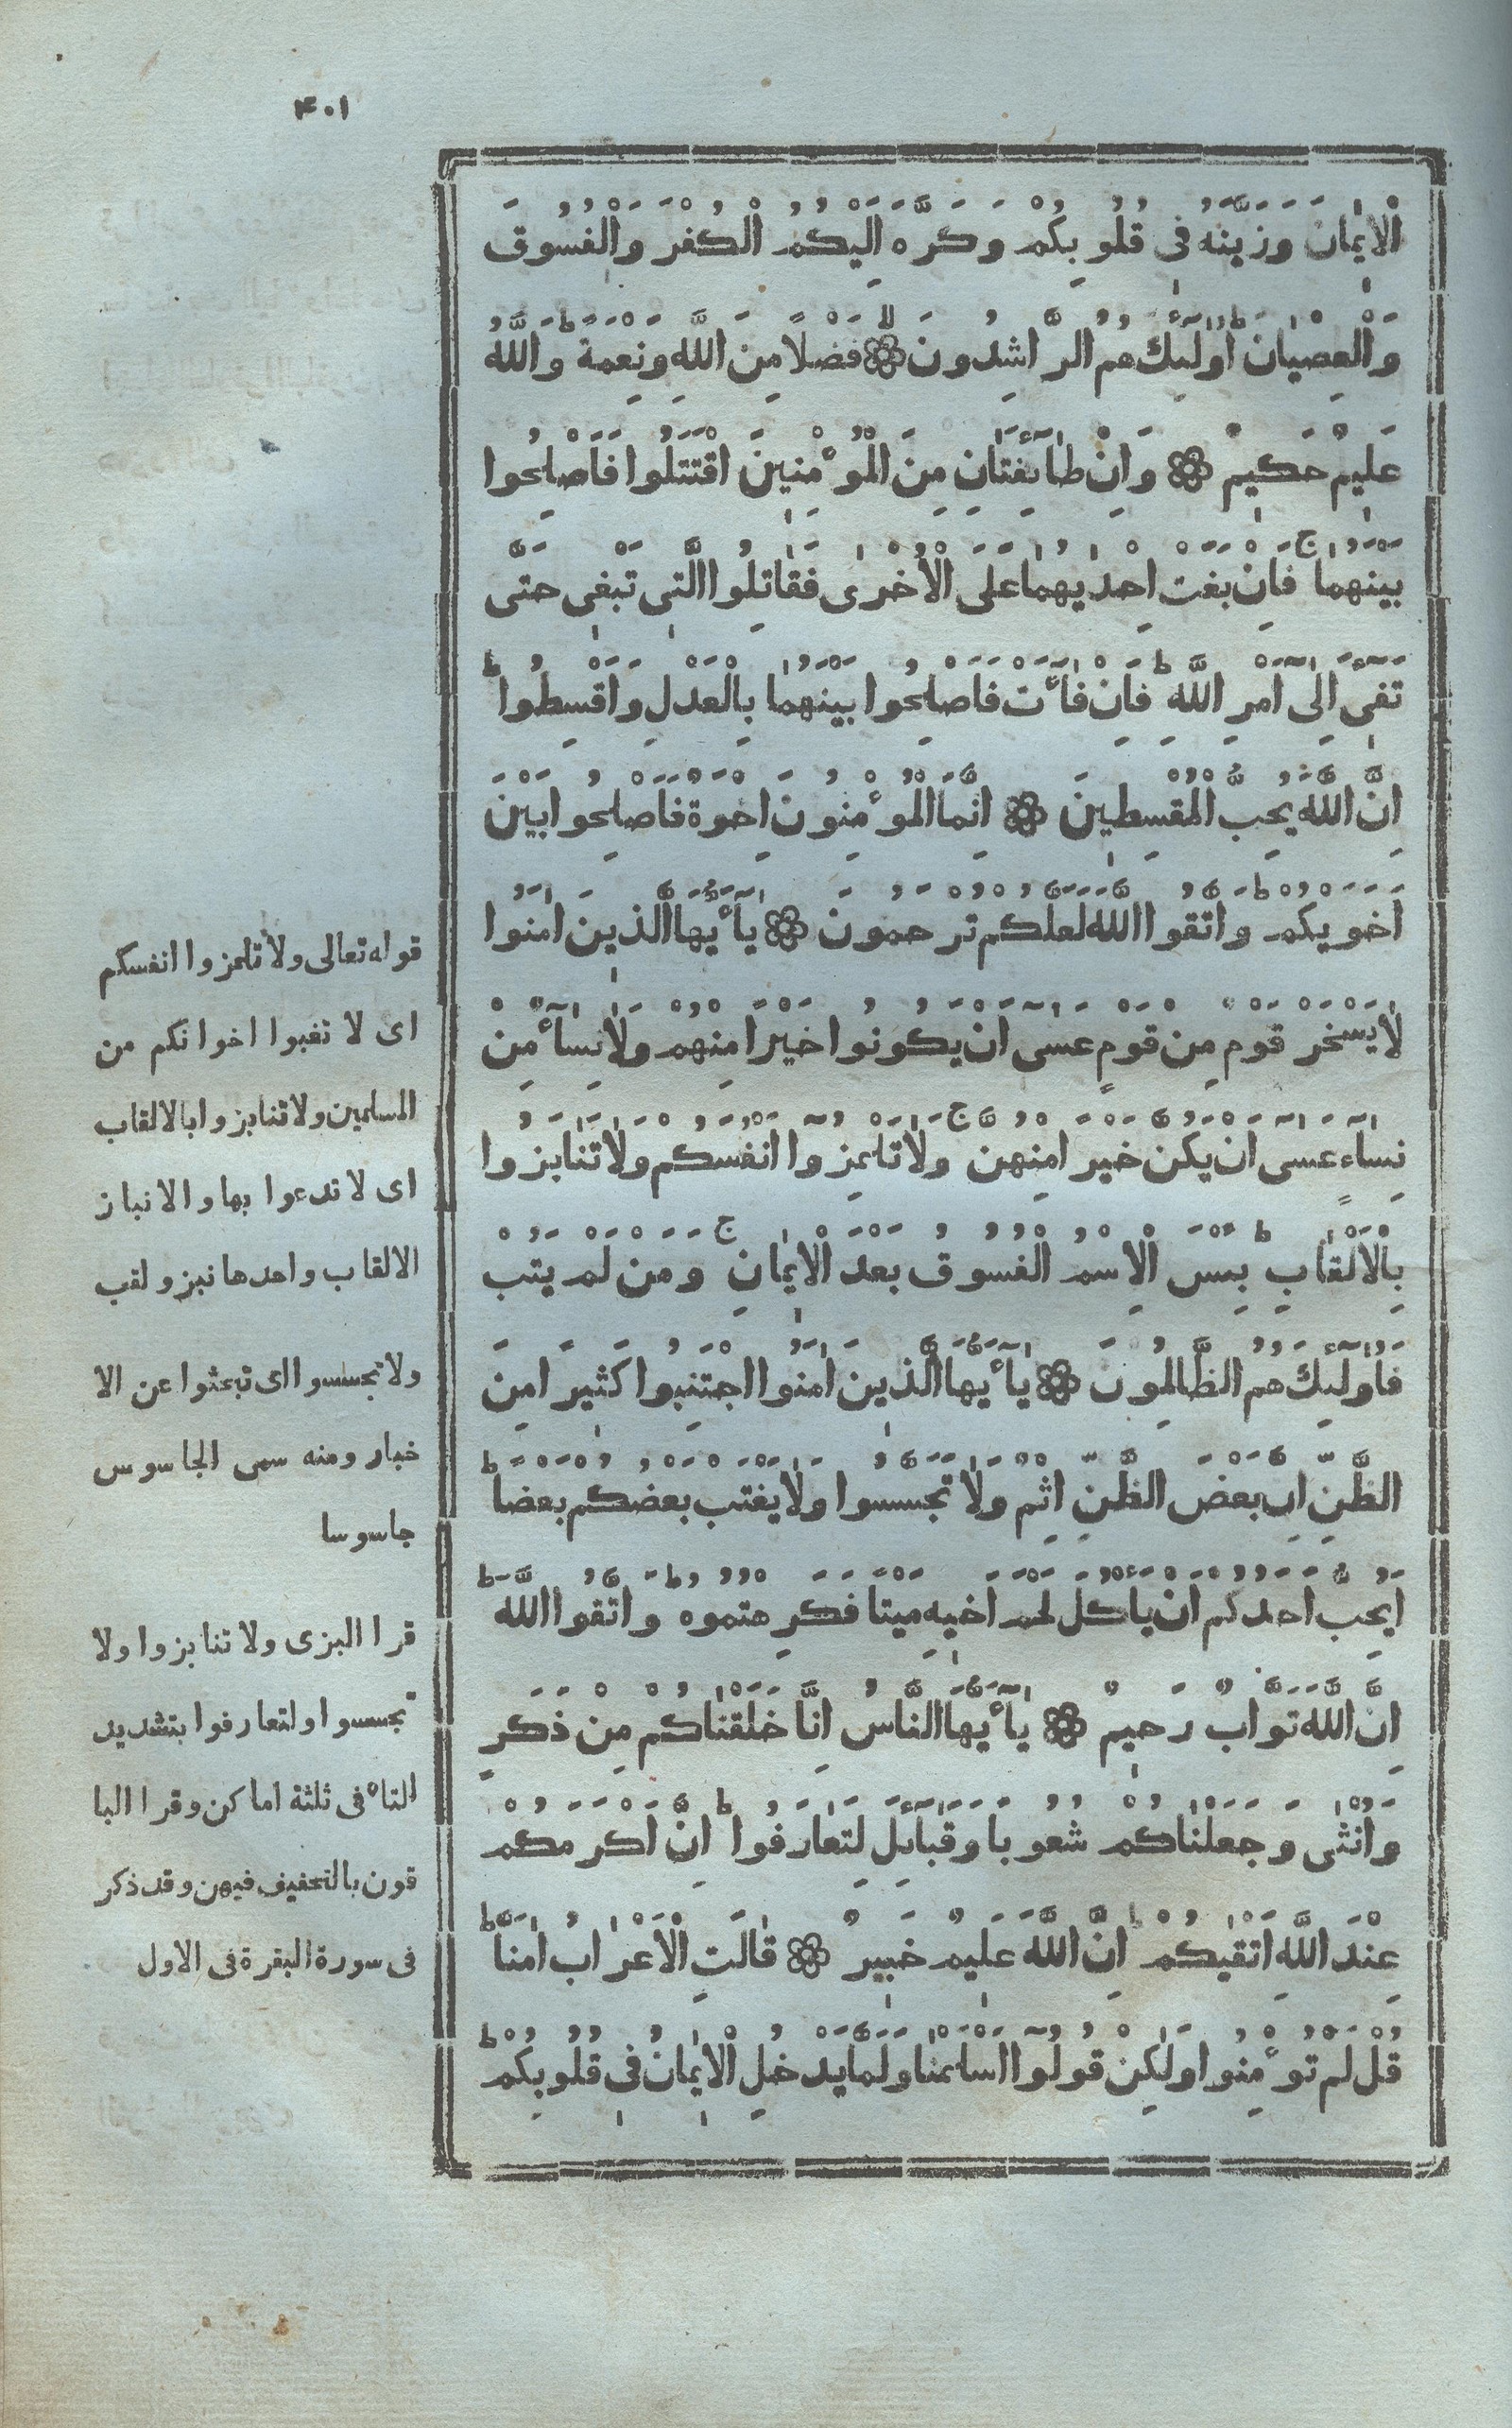 ۴۰۱
الْاِيمَانَ وَزَيَّنَهُ فِى قُلُوبِكُمْ وَكَرَّهَ اِلَيْكُمُ الْكُفْرَ وَالْفُسُوقَ
وَالْعِصْيَانَ ط اُولٰٓئِكَ هُمُ الرَّاشِدُونَ لا فَضْلًا مِنَ اللَّهِ وَنِعْمَةً ط وَاللَّهُ
عَلِيمٌ حَكِيمٌ وَاِنْ طَآئِفَتَانِ مِنَ الْمُؤْمِنِينَ اقْتَتَلُوا فَاَصْلِحُوا
بَيْنَهُمَا ج فَاِنْ بَغَتْ اِحْدٰيهُمَا عَلَى الْاُخْرٰى فَقَاتِلُوا الَّتِى تَبْغِى حَتَّى
تَفِىٓءَ اِلٰٓى اَمْرِ اللَّهِ ط فَاِنْ فَآءَتْ فَاَصْلِحُوا بَيْنَهُمَا بِالْعَدْلِ وَاَقْسِطُوا ط
اِنَّ اللَّهَ يُحِبُّ الْمُقْسِطِينَ اِنَّمَا الْمُؤْمِنُونَ اِخْوَةٌ فَاَصْلِحُوا بَيْنَ
اَخَوَيْكُمْ ط وَاتَّقُوا اللَّهَ لَعَلَّكُمْ تُرْحَمُونَ يَآ اَيُّهَا الَّذِينَ اٰمَنُوا
لَا يَسْخَرْ قَوْمٌ مِنْ قَوْمٍ عَسٰٓى اَنْ يَكُونُوا خَيْرًا مِنْهُمْ وَلَا نِسَآءٌ مِنْ
نِسَآءٍ عَسٰٓى اَنْ يَكُنَّ خَيْرًا مِنْهُنَّ ج وَلَا تَلْمِزُوٓا اَنْفُسَكُمْ وَلَا تَنَابَزُوا
بِالْاَلْقَابِ ط بِئْسَ الْاِسْمُ الْفُسُوقُ بَعْدَ الْاِيمَانِ ج وَمَنْ لَمْ يَتُبْ
فَاُولٰٓئِكَ هُمُ الظَّالِمُونَ يَآ اَيُّهَا الَّذِينَ اٰمَنُوا اجْتَنِبُوا كَثِيرًا مِنَ
الظَّنِّ اِنَّ بَعْضَ الظَّنِّ اِثْمٌ وَلَا تَجَسَّسُوا وَلَا يَغْتَبْ بَعْضُكُمْ بَعْضًا ط
اَيُحِبُّ اَحَدُكُمْ اَنْ يَاْكُلَ لَحْمَ اَخِيهِ مَيْتًا فَكَرِهْتُمُوهُ ط وَاتَّقُوا اللَّهَ ط
اِنَّ اللَّهَ تَوَّابٌ رَحِيمٌ يَآ اَيُّهَا النَّاسُ اِنَّا خَلَقْنَاكُمْ مِنْ ذَكَرٍ
وَاُنْثٰى وَجَعَلْنَاكُمْ شُعُوبًا وَقَبَآئِلَ لِتَعَارَفُوا ط اِنَّ اَكْرَمَكُمْ
عِنْدَ اللَّهِ اَتْقٰيكُمْ ط اِنَّ اللَّهَ عَلِيمٌ خَبِيرٌ قَالَتِ الْاَعْرَابُ اٰمَنَّا ط
قُلْ لَمْ تُؤْمِنُوا وَلٰكِنْ قُولُوٓا اَسْلَمْنَا وَلَمَّا يَدْخُلِ الْاِيمَانُ فِى قُلُوبِكُمْ ط
قوله تعالى ولا تلمزوا انفسكم
اى لا تغيبوا اخوانكم من
المسلمين ولا تنابزوا بالالقاب
اى لا تدعوا بها والانباز
الالقاب واحدها نبز ولقب
ولا تجسسوا اى تبحثوا عن الا
خبار ومنه سمى الجاسوس
جاسوسا
قرا البزى ولا تنابزوا ولا
تجسسوا ولتعارفوا بتشديد
التاء فى ثلثة اماكن وقرا البا
قون بالتخفيف فيهن وقد ذكر
فى سورة البقرة فى الاول